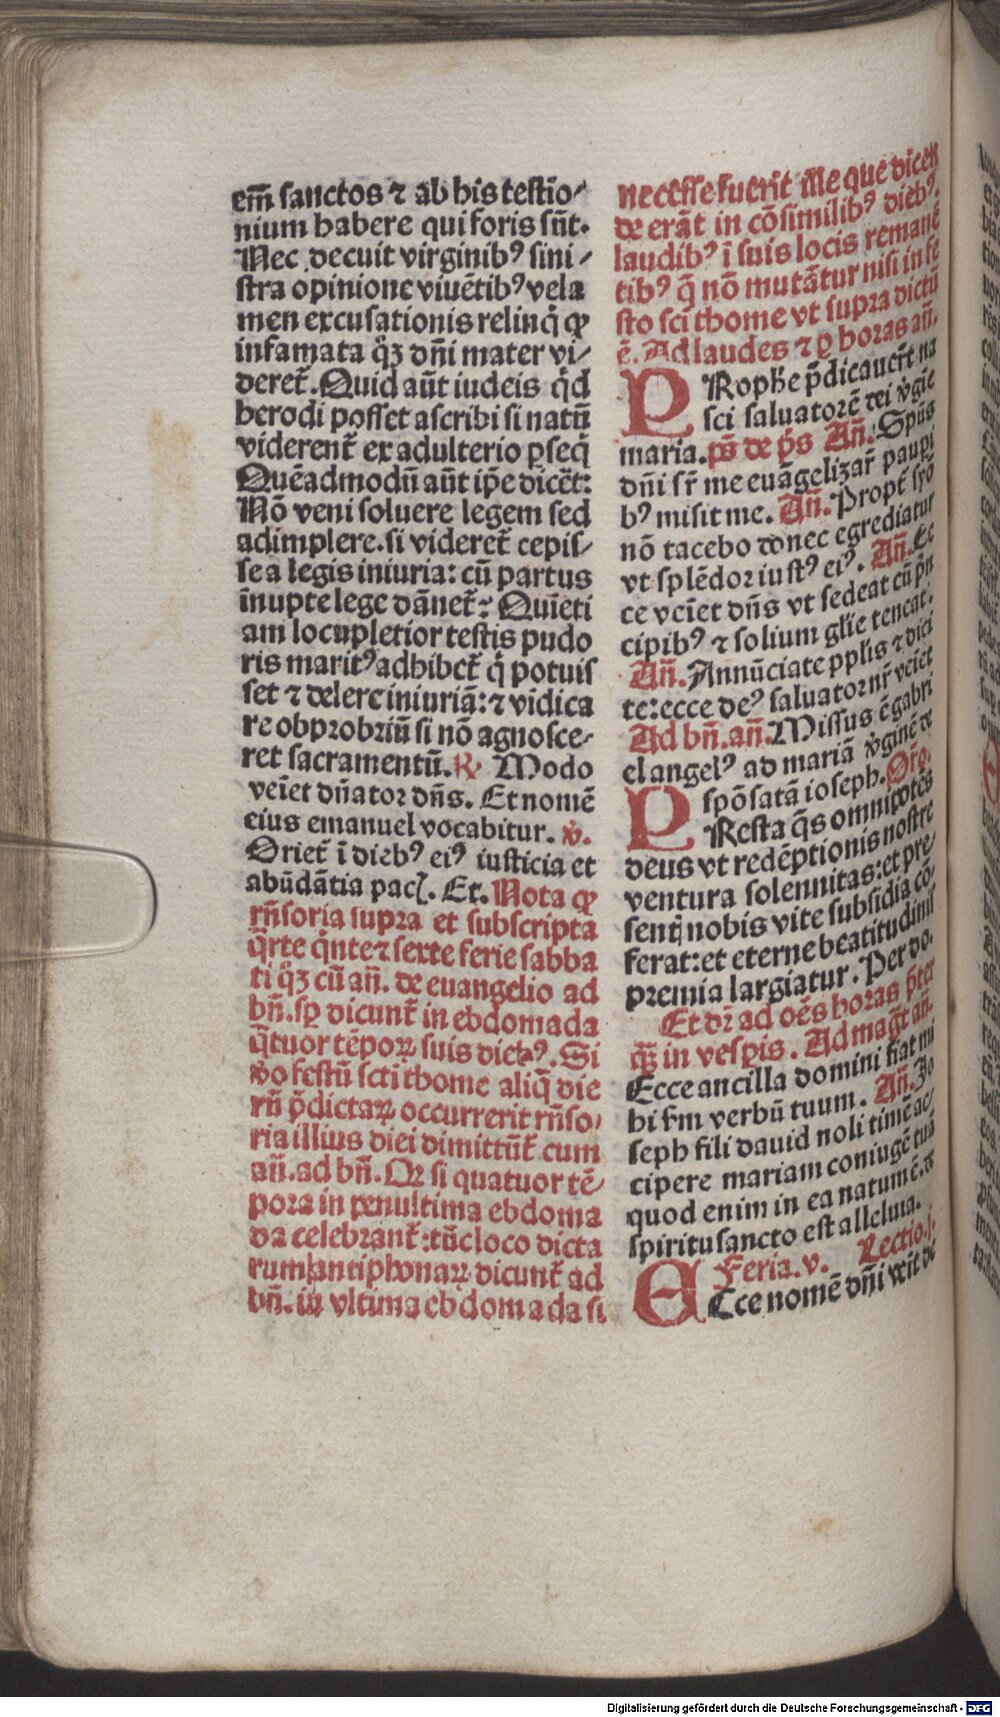 em̄ sanctos ⁊ ab his testio⸗
nium habere qui foris sūt.
Nec decuit virginibꝰ sini⸗
stra opinione viuētibꝰ vela
men excusationis relinq̄ ꝙ
infamata q̊ꝫ dn̄i mater vi⸗
deret᷑. Quid aūt iudeis q̇d
herodi posset ascribi si natū
viderent᷑ ex adulterio ꝑseq̇
Quēadmodū aūt ip̄e dicēt:
Nō veni soluere legem sed
adimplere. si videret᷑ cepis⸗
se a legis iniuria: cū partus
īnupte lege dānet᷑: Quīeti
am locupletior testis pudo
ris maritꝰ adhibet᷑ q̇ potuis
set ⁊ delere iniuriā: ⁊ vīdica
re obprobriū si nō agnosce⸗
ret sacramentū. ℟ Modo
veīet dn̄ator dn̄s. Et nomē
eius emanuel vocabitur. ℣.
Oriet᷑ ī diebꝰ eiꝰ iusticia et
abūdātia pacꝭ. Et. Nota ꝙ
rn̄soria supra et subscripta
q̄rte q̇nte ⁊ sexte ferie sabba
ti q̊ꝫ cū an̄. de euangelio ad
bn̄. sꝑ dicunt᷑ in ebdomada
q̄tuor tēpoꝝ suis diebꝰ. Si
v̊o festū scti thome aliq̄ die
rū p̄dictaꝝ occurrerit rn̄so⸗
ria illius diei dimittūt᷑ cum
an̄. ad bn̄. Qꝛ si quatuor tē⸗
pora in penultima ebdoma
da celebrant᷑: tūc loco dicta
rum antiphonaꝝ dicunt᷑ ad
bn̄. in vltima ebdomada si
necesse fuerīt ille que dicēn
de erāt in cōsimilibꝰ diebꝰ.
laudibꝰ ī suis locis remanē
tibꝰ q̄ nō mutātur nisi in fe
sto sci thome vt supra dictū
ē. Ad laudes ⁊ ꝑ horas an̄.
PRophē p̄dicauer̄t na
sci saluatorē dei v̊gīe
maria. ps̄ de p̄s An̄. Spūs
dn̄i sr̄ me euāgelizar̄ paupi
bꝰ misit me. An̄. Propt᷑ syō
nō tacebo donec egrediatur
vt splēdor iustꝰ eiꝰ. An̄. Ec
ce veīet dn̄s vt sedeat cū p̄n
cipibꝰ ⁊ solium glīe teneat.
An̄. Annūciate pplis ⁊ dici
te: ecce deꝰ saluator nr̄ veīet
Ad bn̄. an̄. Missus ē gabri
el angelꝰ ad mariā v̊ginē de
spōsatā ioseph. Oro.
PResta q̄s omnipotēs
deus vt redēptionis nostre
ventura solennitas: et pre⸗
sentꝭ nobis vite subsidia cō
ferat: et eterne beatitudinis
premia largiatur. Per do.
Et dr̄ ad oēs horas p̄ter
qꝫ in vespis. Ad mag̊t an̄.
Ecce ancilla domini fiat mi
hi s̄m verbū tuum. An̄. Jo
seph fili dauid noli timē ac⸗
cipere mariam coniugē tuā
quod enim in ea natum ē. de
spiritu sancto est alleluia.
Feria. v. Lectio. j.
ECce nomē dn̄i veīt de
Digitalisierung gefördert durch die Deutsche Forschungsgemeinschaft - DFG